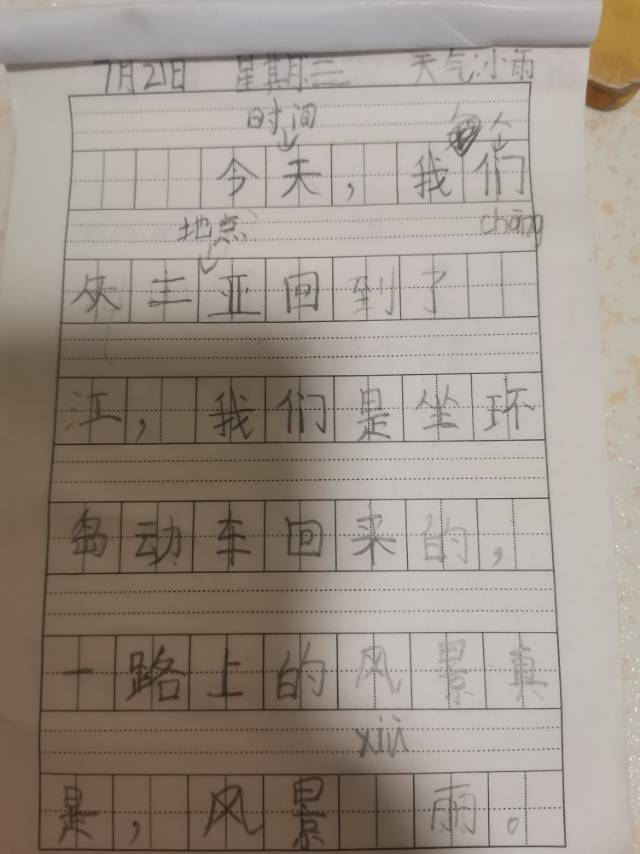 7月21日 星期三 天气小雨
时间
今天，我们
地点 chāng
从三亚回到了
江，我们是坐环
岛动车回来的，
一路上的风景真
xiù
是，风景 丽。